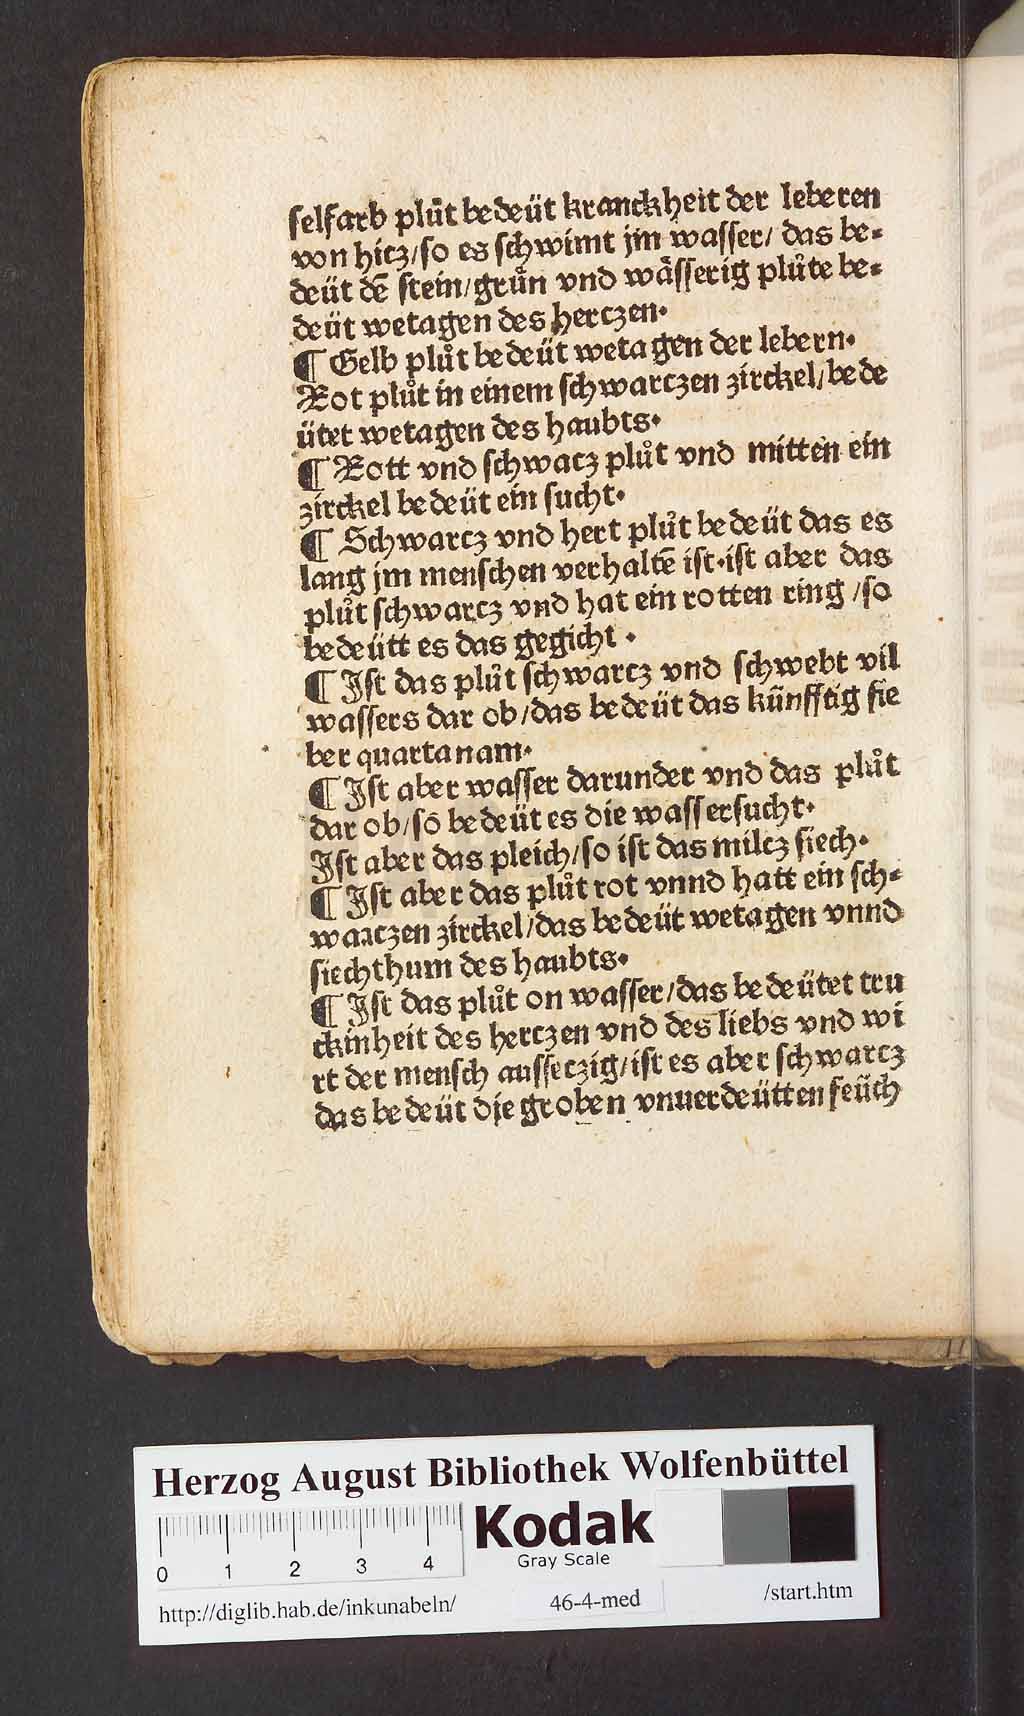 selfarb plůt bedeüt kranckheit der leberen
von hitz/so es schwimt jm wasser/ das be⸗
deüt dẽ stein/grůn vnd wässerig plůte be⸗
deüt wetagen des herczen.
¶ Gelb plůt bedeüt wetagen der lebern.
Rot plůt in einem schwarczen zirckel/bede
ütet wetagen des haubts.
¶ Rott vnd schwacz plůt vnd mitten ein
zirckel bedeüt ein sucht.
¶ Schwarcz vnd hert plůt bedeüt das es
lang jm menschen verhaltẽ ist.ist aber das
plůt schwarcz vnd hat ein rotten ring /so
bedeütt es das gegicht .
¶ Ist das plůt schwarcz vnd schwebt vil
wassers dar ob/das bedeüt das künfftig fie
ber quartanam.
¶ Ist aber wasser darunder vnd das plůt
dar ob/so bedeüt es die wassersucht.
Ist aber das pleich/so ist das milcz siech.
¶ Ist aber das plůt rot vnnd hatt ein sch⸗
warczen zirckel/das bedeüt wetagen vnnd
siechthum des haubts.
¶ Ist das plůt on wasser/das bedeütet tru
ckinheit des herczen vnd des liebs vnd wi
rt der mensch ausseczig/ist es aber schwarcz
das bedeüt dje groben vnuerdeütten feüch
Herzog August Bibliothek Wolfenbüttel
Kodak
Gray Scale
0 1 2 3 4
http://diglib.hab.de/inkunabeln/ 46-4-med /start.htm